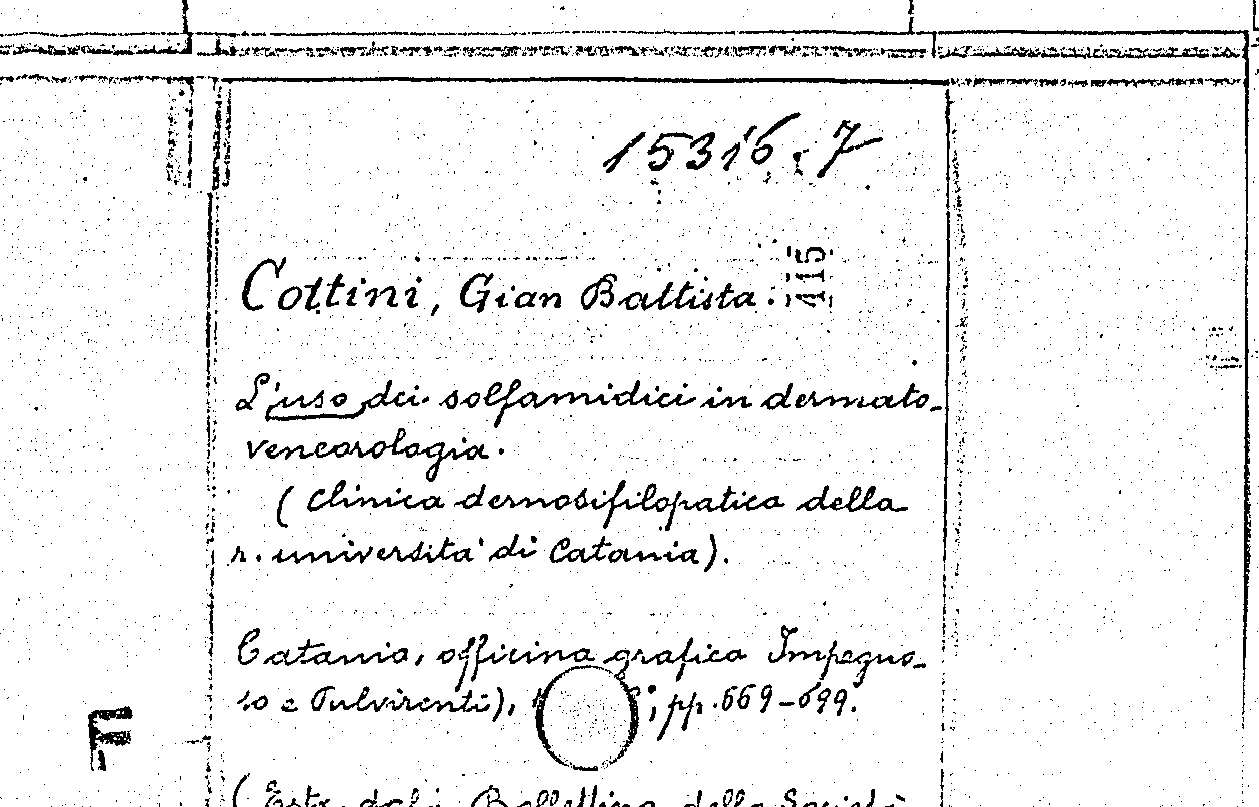 15316.7
415
Cottini, Gian Battista.
L'uso dei solfamidici in dermato-
venearologia.
(Clinica dermosifilopatica della
r. università di Catania).
Catania, officina grafica Impegno-
so e Pulvirenti), ; pp. 669-699.
F
(Estr. dal: Bollettino della Società